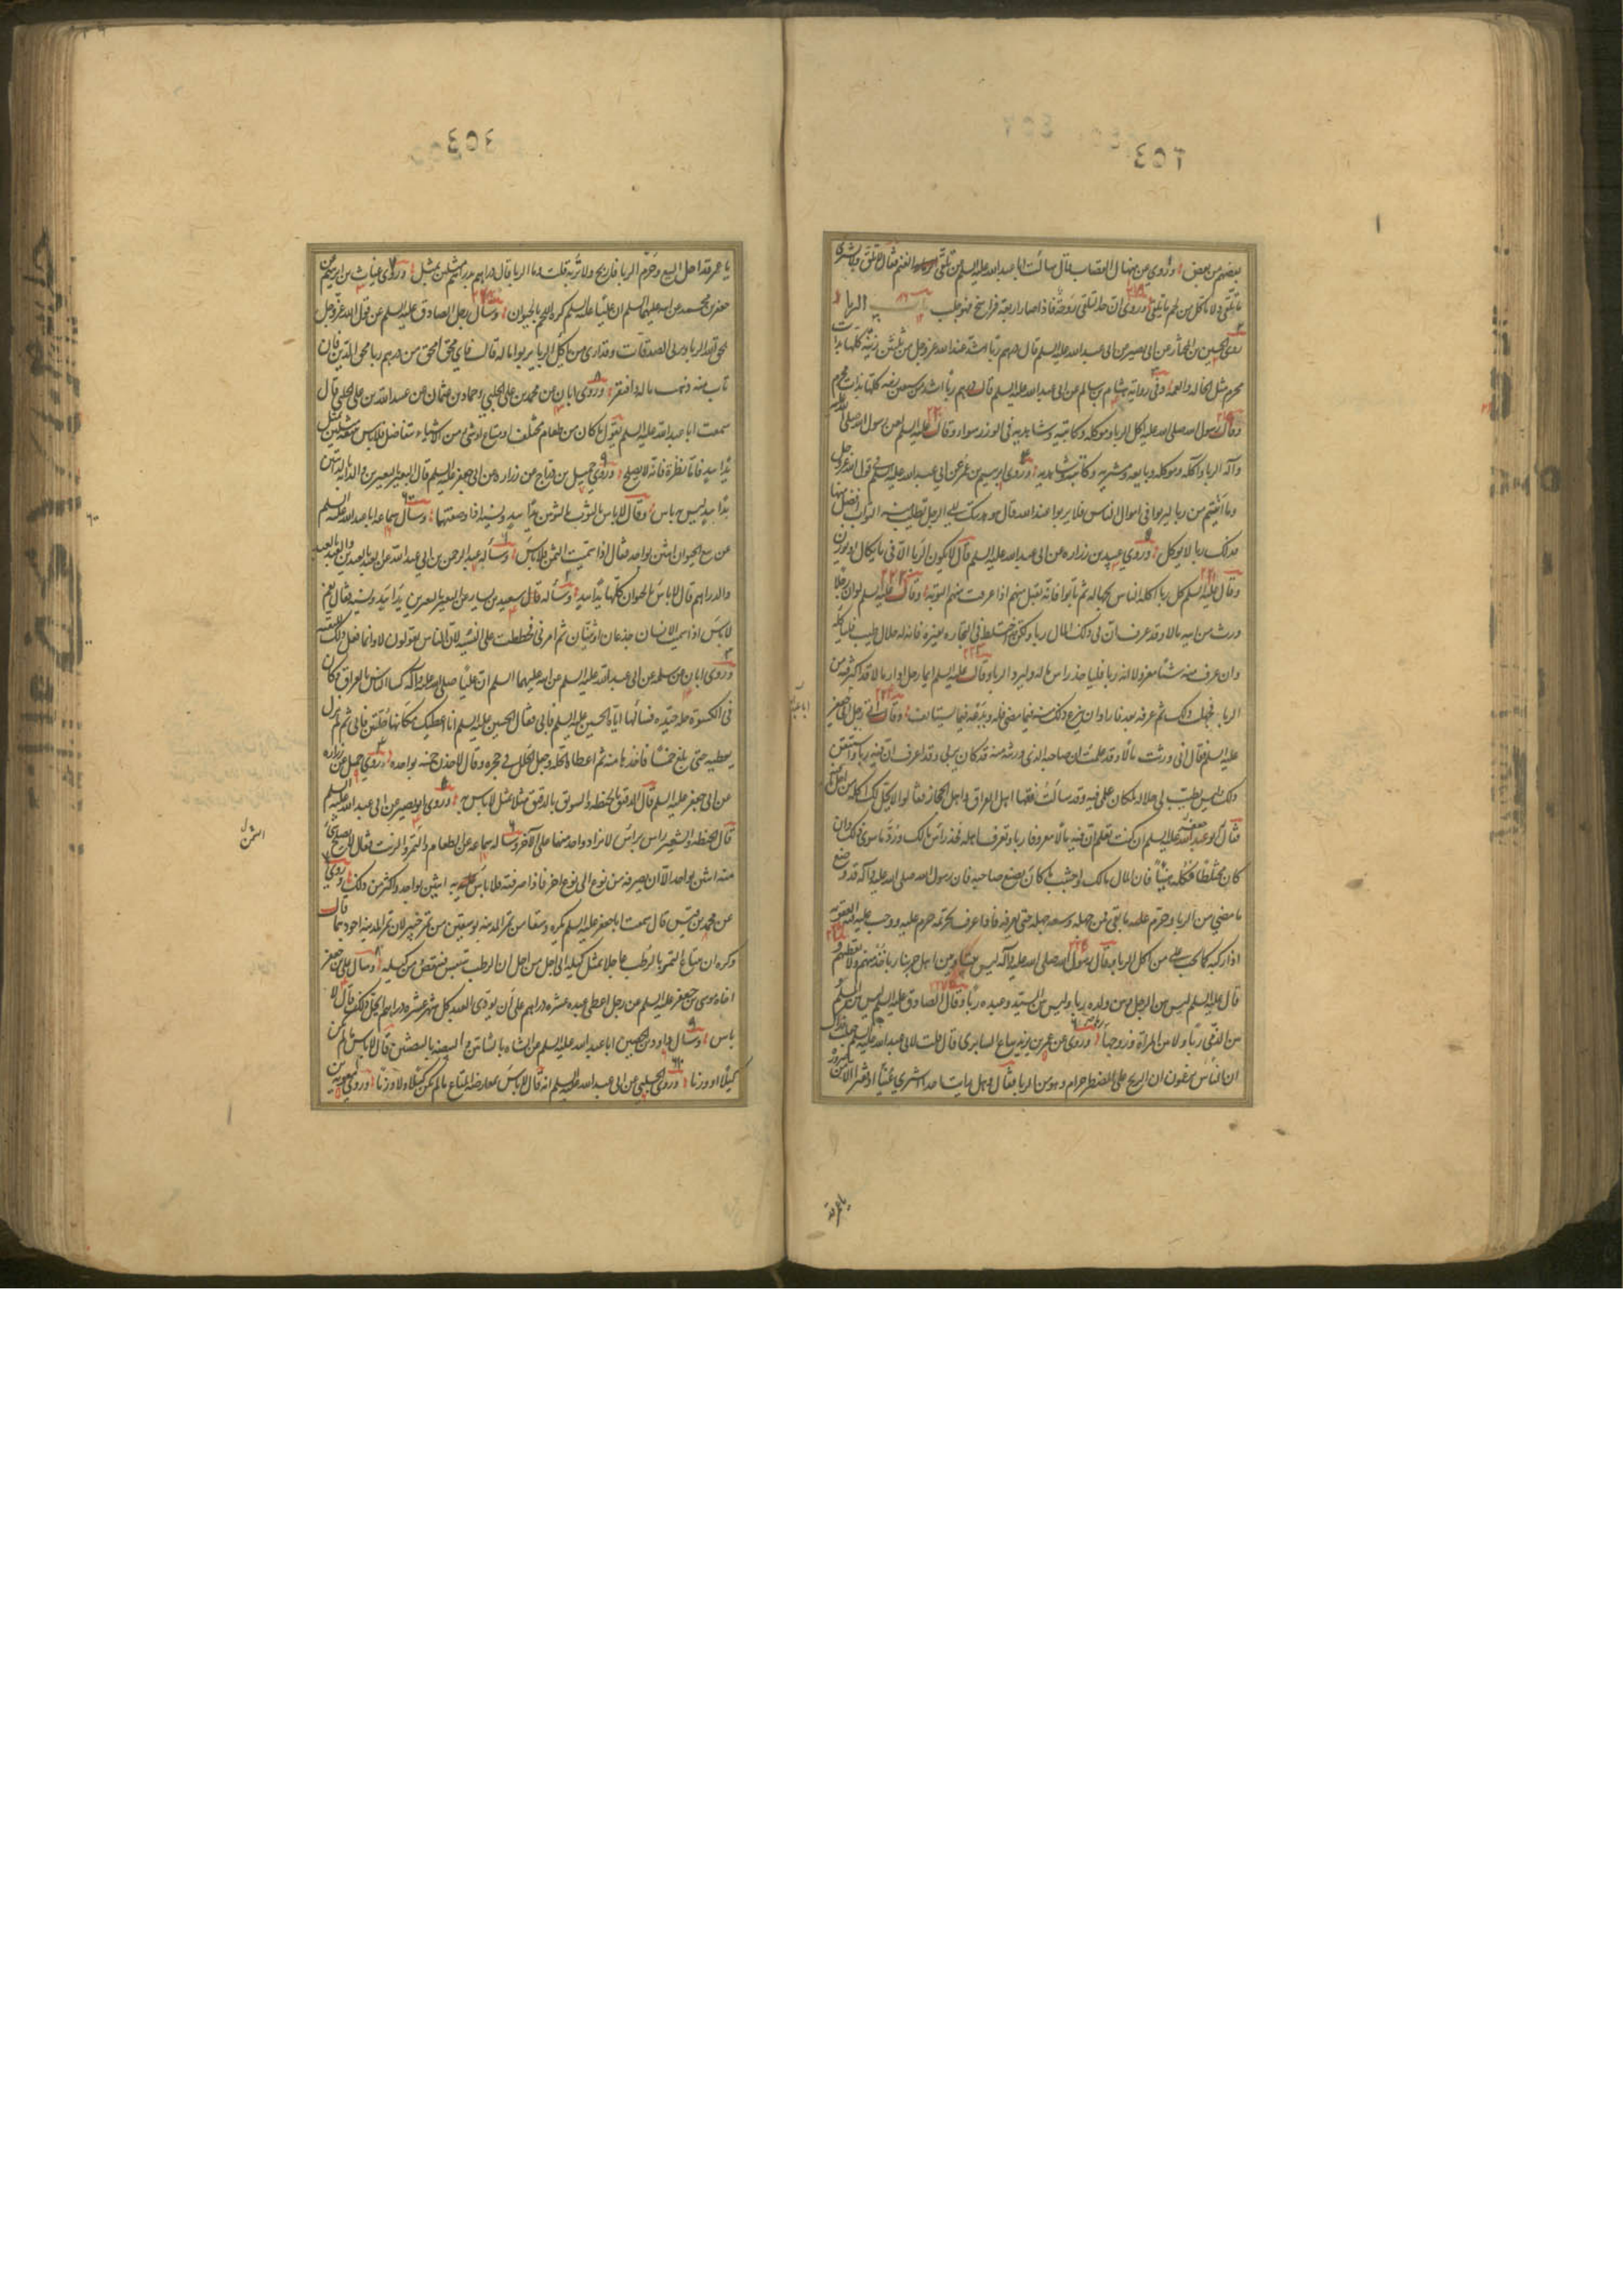 بعضهم من بعض وروي عن منهال القصاب قال سالت ابا عبد الله عليه السلم عن تلقي الغنم فقال لا تلق ولا تشتر
ما تلقي ولا تاكل من لحم ما تلقي وروي ان حد التلقي روحة فاذا صار اربعة فراسخ فهو جلب باب الربا
روي الحسين بن المختار عن ابي بصير عن ابي عبد الله عليه السلم قال درهم ربا اشد عند الله عز وجل من ثلثين زنية كلها بذات
محرم مثل الخالة والعمة وفي رواية هشام بن سالم عن ابي عبد الله عليه السلم قال درهم ربا اشد من سبعين زنية كلها بذات محرم
وقال رسول الله صلى الله عليه اكل الربا وموكله وكاتبه وشاهديه في الوزر سواء وقال عليه السلم لعن رسول الله صلى الله عليه
واله الربا واكله وموكله وبايعه ومشتريه وكاتبه وشاهديه وروي ابرهيم بن عمر عن ابي عبد الله عليه السلم في قول الله عز وجل
وما اتيتم من ربا ليربوا في اموال الناس فلا يربوا عند الله قال هو هديتك الى الرجل تطلب منه الثواب افضل منها
فذلك ربا لا يوكل وروي عبيد بن زرارة عن ابي عبد الله عليه السلم قال لا يكون الربا الا في ما يكال او يوزن
وقال عليه السلم كل ربا اكله الناس بجهالة ثم تابوا فانه تقبل منهم اذا عرفت منهم التوبة وقال عليه السلم لو ان رجلا
ورث من ابيه مالا وقد عرف ان في ذلك المال ربا ولكن اختلط في التجارة بغيره فانه له حلال طيب فلياكله
وان عرف منه شيئا معزولا انه ربا فلياخذ راس ماله وليرد الربا وقال عليه السلم ايما رجل ادار مالا قد اكثر فيه من
الربا فجهل ذلك ثم عرفه بعد فاراد ان ينزع ذلك منه فيما مضى فله ويدعه فيما يستانف وقال اتى رجل ابي جعفر
عليه السلم فقال اني ورثت مالا وقد علمت ان صاحبه الذي ورثته منه قد كان يربي وقد اعرف ان فيه ربا واستيقن
ذلك وليس يطيب لي حلاله لمكان علمي فيه وقد سالت فقهاء اهل العراق واهل الحجاز فقالوا لا يحل لك اكله من اجل ما فيه
فقال ابو جعفر عليه السلم ان كنت تعلم ان فيه مالا معروفا ربا وتعرف اهله فخذ راس مالك ورد ما سوى ذلك وان
كان مختلطا فكله هنيئا فان المال مالك واجتنب ما كان يصنع صاحبه فان رسول الله صلى الله عليه واله قد وضع
ما مضى من الربا وحرم عليه ما بقي فمن جهله وسعه جهله حتى يعرفه فاذا عرف تحريمه حرم عليه ووجب عليه فيه العقوبة
اذا ركبه كما يجب على من اكل الربا وقال رسول الله صلى الله عليه واله ليس بيننا وبين اهل حربنا ربا ناخذ منهم ولا نعطيهم
قال عليه السلم ليس بين الرجل وبين ولده ربا وليس بين السيد وعبده ربا وقال الصادق عليه السلم ليس بين المسلم
وبين الذمي ربا ولا بين المراة وزوجها وروي عن عمر بن يزيد بياع السابري قال قلت لابي عبد الله عليه السلم جعلت فداك
ان الناس يزعمون ان الربح على المضطر حرام وهو من الربا فقال وهل رايت احدا اشترى غنيا او فقيرا الا من ضرورة
يا عمر قد
يا عمر قد احل الله البيع وحرم الربا فاربح ولا تربه قلت وما الربا قال دراهم بدراهم مثلين بمثل وروي غياث بن ابرهيم عن
جعفر بن محمد عن ابيه عليهما السلم ان عليا عليه السلم كره بيع اللحم بالحيوان وسال رجل الصادق عليه السلم عن قول الله عز وجل
يمحق الله الربا ويربي الصدقات وقد ارى من ياكل الربا يربوا ماله قال فاي محق امحق من درهم ربا يمحق الدين فان
تاب منه ذهب ماله وافتقر وروى ابان عن محمد بن علي الحلبي وحماد بن عثمان عن عبيد الله بن علي الحلبي قال
سمعت ابا عبد الله عليه السلم يقول ما كان من طعام مختلف او متاع او شئ من الاشياء متفاضل فلا باس ببيعه مثلين بمثل
يدا بيد فاما نظرة فانه لا يصلح وروي جميل بن دراج عن زرارة عن ابي جعفر عليه السلم قال البعير بالبعيرين والدابة بالدابتين
يدا بيد ليس به باس وقال لا باس بالثوب بالثوبين يدا بيد ونسية اذا وصفتهما وسال سماعة ابا عبد الله عليه السلم
عن بيع الحيوان اثنين بواحد فقال اذا سميت الثمن فلا باس وساله عبد الرحمن بن ابي عبد الله عن العبد بالعبدين والعبد بالعبد
والدراهم قال لا باس بالحيوان كلها يدا بيد وساله سعيد بن يسار عن البعير بالبعيرين يدا بيد ونسية فقال نعم
لا باس اذا سميت الاسنان جذعان او ثنيان ثم امرني فخططت على النسية لان الناس يقولون لا وانما فعل ذلك للتقية
وروى ابان عن سلمة عن ابي عبد الله عليه السلم عن ابيه عليهما السلم ان عليا صلى الله عليه واله كسا الناس بالعراق وكان
في الكسوة حلة جيدة فسالها اياه الحسين عليه السلم فابى فقال الحسين عليه السلم انا اعطيك مكانها حلتين فابى ثم لم يزل
يعطيه حتى بلغ خمسا فاخذها منه ثم اعطاه الحلة وجعل الحلل في حجره وقال لاخذن خمسة بواحدة وروي جميل عن زرارة
عن ابي جعفر عليه السلم قال الدقيق بالحنطة والسويق بالدقيق مثلا بمثل لا باس به وروى ابو بصير عن ابي عبد الله عليه السلم
قال الحنطة والشعير راس براس لا يزاد واحد منهما على الاخر وساله سماعة عن الطعام والتمر والزبيب فقال لا يصلح شئ
منه اثنين بواحد الا ان يصرفه من نوع الى نوع اخر فاذا صرفته فلا باس به اثنين بواحد واكثر من ذلك وروي
عن محمد بن قيس قال سمعت ابا جعفر عليه السلم يكره وسقا من تمر المدينة بوسقين من تمر خيبر لان تمر المدينة اجودهما قال
وكره ان يباع التمر بالرطب عاجلا بمثل كيله الى اجل من اجل ان الرطب ييبس فينقص من كيله وسال علي بن جعفر
اخاه موسى بن جعفر عليه السلم عن رجل اعطى عبده عشرة دراهم على ان يودي العبد كل شهر عشرة دراهم ايحل ذلك قال لا
باس وسال داود بن الحصين ابا عبد الله عليه السلم عن الشاة بالشاتين والبيضة بالبيضتين قال لا باس ما لم يكن
كيلا او وزنا وروى الحلبي عن ابي عبد الله عليه السلم انه قال لا باس بمعاوضة المتاع ما لم يكن كيلا ولا وزنا وروي معوية بن